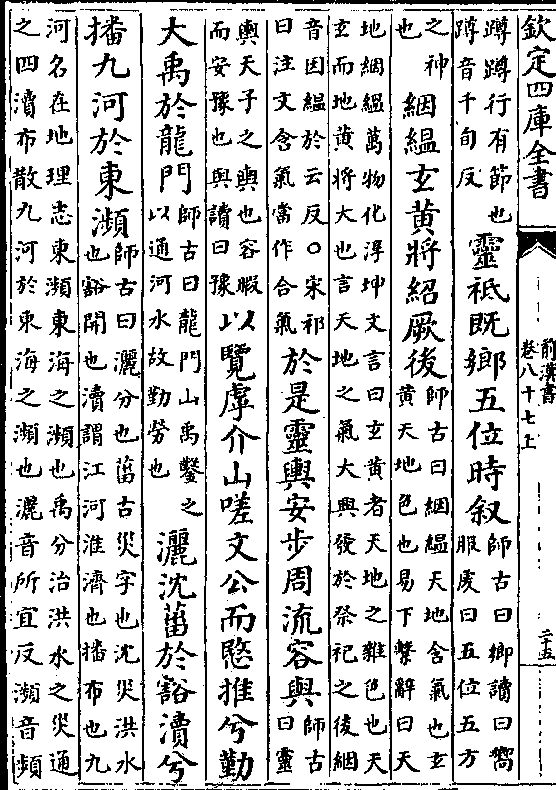 欽定四庫全書
前漢書
卷八十七上
二十五
蹲蹲行有節也
蹲音千旬反
靈祇既鄉五位時叙
師古曰鄉讀曰嚮
服虔曰五位五方
之神
也
絪緼玄黃將紹厥後
師古曰絪緼天地含氣也玄
黃天地色也易下繫辭曰天
地絪緼萬物化淳坤文言曰玄黃者天地之雜色也天
玄而地黃將大也言天地之氣大興發於祭祀之後絪
音因緼於云反○宋祁
曰注文含氣當作合氣
於是靈輿安步周流容與
師古
曰靈
輿天子之輿也容暇
而安豫也與讀曰豫
以覽虖介山嗟文公而愍推兮勤
大禹於龍門
師古曰龍門山禹鑿之
以通河水故勤勞也
灑沈菑於豁瀆兮
播九河於東瀕
師古曰灑分也菑古災字也沈災洪水
也豁開也瀆謂江河淮濟也播布也九
河名在地理志東瀕東海之瀕也禹分治洪水之災通
之四瀆布散九河於東海之瀕也灑音所宜反瀕音頻